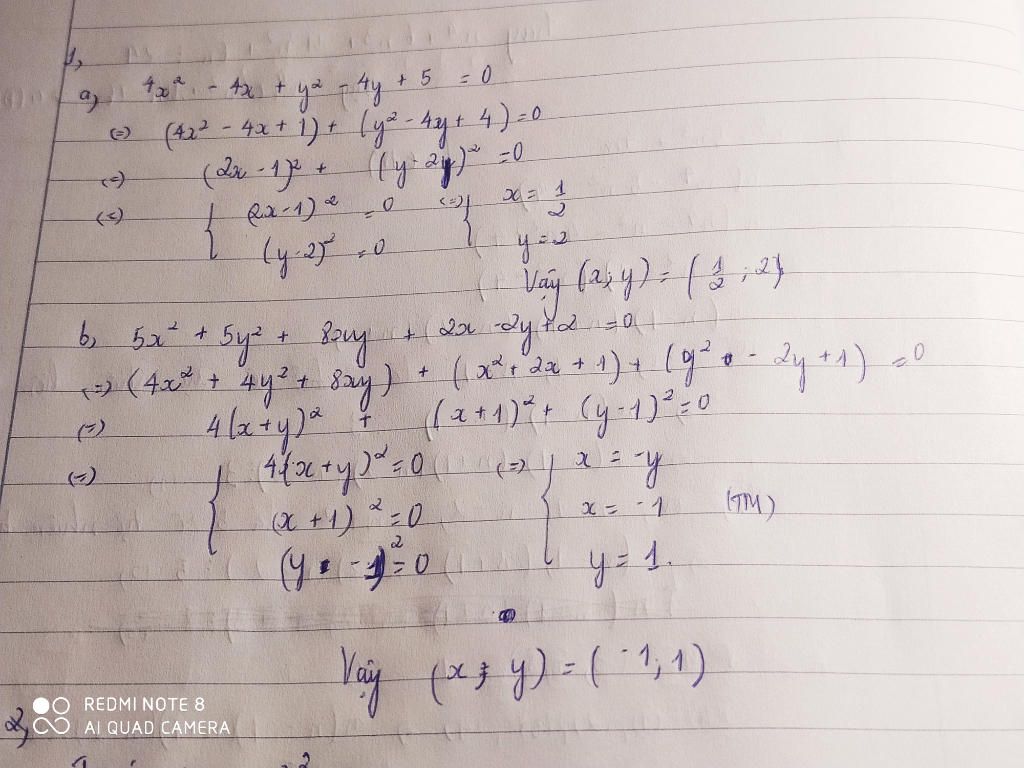 1,
a, 4x² - 4x + y² - 4y + 5 = 0
(=) (4x² - 4x + 1) + (y² - 4y + 4) = 0
(=) (2x - 1)² + (y - 2)² = 0
(=) { (2x - 1)² = 0 (=) { x = 1/2
(y - 2)² = 0 y = 2
Vậy (x; y) = (1/2 ; 2)
b, 5x² + 5y² + 8xy + 2x - 2y + 2 = 0
(=) (4x² + 4y² + 8xy) + (x² + 2x + 1) + (y² - 2y + 1) = 0
(=) 4(x + y)² + (x + 1)² + (y - 1)² = 0
(=) { 4(x + y)² = 0 (=) { x = -y
(x + 1)² = 0 x = -1 (TM)
(y - 1)² = 0 y = 1.
Vậy (x; y) = (-1; 1)
2,
REDMI NOTE 8
AI QUAD CAMERA